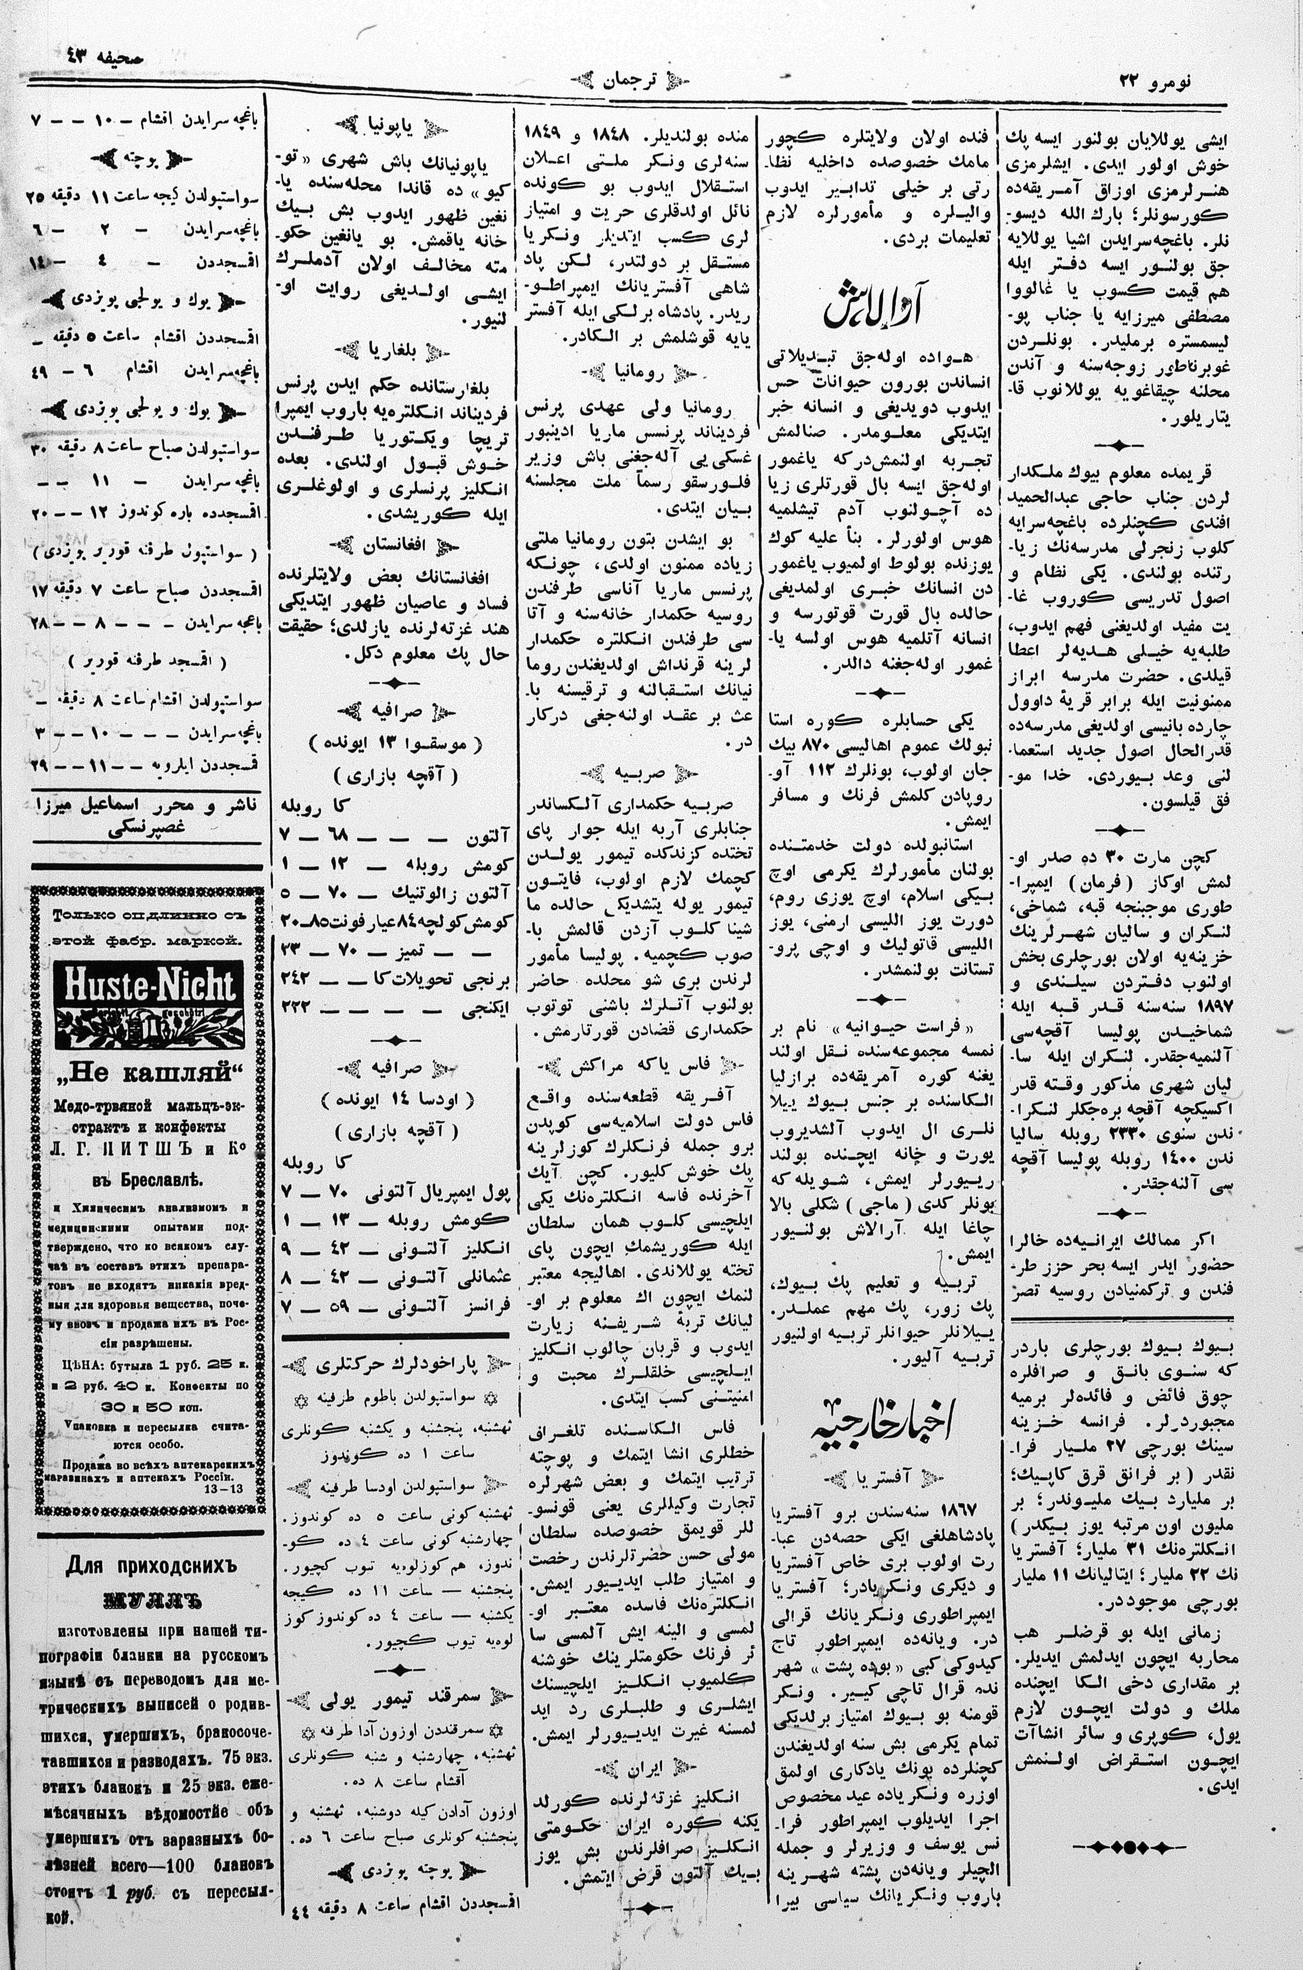 نومرو ۲۲
ترجمان
صحیفه ٤٣
ایشی یوللایان بولنور ایسه پك
خوش اولور ایدی. ایشلرمزی
هنرلرمزی اوزاق آمریقه‌ده
كورسونلر؛ بارك الله دیسو-
نلر. باغچه‌سرایدن اشیا یوللایه
جق بولنور ایسه دفتر ایله
هم قیمت كسوب یا غالووا
مصطفی میرزایه یا جناب پو-
لیسمستره برملیدر. بونلردن
غوبرناطور زوجه‌سنه و آندن
محلنه چیقاغویه یوللانوب قا-
یتاریلور.
قریمده معلوم بیوك ملكدار
لردن جناب حاجی عبدالحمید
افندی كچنلرده باغچه‌سرایه
كلوب زنجرلی مدرسه‌نك زیا-
رتنده بولندی. یكی نظام و
اصول تدریسی كوروب غا-
یت مفید اولدیغنی فهم ایدوب،
طلبه‌یه خیلی هدیه‌لر اعطا
قیلدی. حضرت مدرسه ابراز
ممنونیت ایله برابر قریهٔ داوول
چارده بانیسی اولدیغی مدرسه‌ده
قدرالحال اصول جدید استعما-
لنی وعد بیوردی. خدا مو-
فق قیلسون.
كچن مارت ۳۰ ده صدر او-
لمش اوكاز (فرمان) ایمپرا-
طوری موجبنجه قبه، شماخی،
لنكران و سالیان شهرلرینك
خزینه‌یه اولان بورچلری بخش
اولنوب دفتردن سیلندی و
۱۸۹۷ سنه‌سنه قدر قبه ایله
شماخیدن پولیسا آقچه‌سی
آلنمیه‌جقدر. لنكران ایله سا-
لیان شهری مذكور وقته قدر
اكسیكچه آقچه بره‌جكلر لنكرا-
ندن سنوی ۲۳۳۰ روبله سالیا
ندن ۱٤۰۰ روبله پولیسا آقچه
سی آلنه‌جقدر.
اكر ممالك ایرانیه‌ده خالرا
حضور ایدر ایسه بحر حزز طر-
فندن و تركمنیادن روسیه تصر
بیوك بیوك بورچلری باردر
كه سنوی بانق و صرافلره
چوق فائض و فائده‌لر برمیه
مجبوردرلر. فرانسه خزینه
سینك بورچی ۲۷ ملیار فرا-
نقدر (بر فرانق قرق كاپیك؛
بر ملیارد بیك ملیوندر؛ بر
ملیون اون مرتبه یوز بیكدر)
انكلتره‌نك ۳۱ ملیار؛ آفستریا
نك ۲۲ ملیار؛ ایتالیانك ۱۱ ملیار
بورچی موجوددر.
زمانی ایله بو قرضلر هب
محاربه ایچون ایدلمش ایدیلر.
بر مقداری دخی الكا ایچنده
ملك و دولت ایچون لازم
یول، كوپری و سائر انشاآت
ایچون استقراض اولنمش
ایدی.
فنده اولان ولایتلره كچور
مامك خصوصده داخلیه نظا-
رتی بر خیلی تدابیر ایدوب
والیلره و مأمورلره لازم
تعلیمات بردی.
آرالاش
هواده اوله‌جق تبدیلاتی
انساندن بورون حیوانات حس
ایدوب دویدیغی و انسانه خبر
ایتدیكی معلومدر. صنالمش
تجربه اولنمش‌دركه یاغمور
اوله‌جق ایسه بال قورتلری زیا
ده آچولنوب آدم تیشلمیه
هوس اولورلر. بنأ علیه كوك
یوزنده بولوط اولمیوب یاغمور
دن انسانك خبری اولمدیغی
حالده بال قورت قوتورسه و
انسانه آتلمیه هوس اولسه یا-
غمور اوله‌جغنه دالدر.
یكی حسابلره كوره استا
نبولك عموم اهالیسی ۸۷۰ بیك
جان اولوب، بونلرك ۱۱۲ آو-
روپادن كلمش فرنك و مسافر
ایمش.
استانبولده دولت خدمتنده
بولنان مأمورلرك یكرمی اوچ
بیكی اسلام، اوچ یوزی روم،
دورت یوز اللیسی ارمنی، یوز
اللیسی قاتولیك و اوچی پرو-
تستانت بولنمشدر.
«فراست حیوانیه» نام بر
نمسه مجموعه‌سنده نقل اولند
یغنه كوره آمریقه‌ده برازلیا
الكاسنده بر جنس بیوك ییلا
نلری ال ایدوب آلشدیروب
یورت و خانه ایچنده بولند
ریورلر ایمش، شویله كه
بونلر كدی (ماچی) شكلی بالا
چاغا ایله آرالاش بولنیور
ایمش.
تربیه و تعلیم پك بیوك،
پك زور، پك مهم عملدر.
ییلانلر حیوانلر تربیه اولنیور
تربیه آلیور.
اخبار خارجیه
آفستریا
۱۸٦۷ سنه‌سندن برو آفستریا
پادشاهلغی ایكی حصه‌دن عبا-
رت اولوب بری خاص آفستریا
و دیكری ونكریادر؛ آفستریا
ایمپراطوری ونكریانك قرالی
در. ویانه‌ده ایمپراطور تاج
كیدوكی كبی «بوده پشت» شهر
نده قرال تاچی كییر. ونكر
قومنه بو بیوك امتیاز برلدیكی
تمام یكرمی بش سنه اولدیغندن
كچنلرده بونك یادكاری اولمق
اوزره ونكریاده عید مخصوص
اجرا ایدیلوب ایمپراطور فرا-
نس یوسف و وزیرلر و جمله
الچیلر ویانه‌دن پشته شهرینه
باروب ونكریانك سیاسی بیرا
منده بولندیلر. ۱۸٤۸ و ۱۸٤۹
سنه‌لری ونكر ملتی اعلان
استقلال ایدوب بو كونده
نائل اولدقلری حریت و امتیاز
لری كسب ایتدیلر ونكریا
مستقل بر دولتدر، لكن پاد
شاهی آفستریانك ایمپراطو-
ریدر. پادشاه برلكی ایله آفستر
یایه قوشلمش بر الكادر.
رومانیا
رومانیا ولی عهدی پرنس
فردیناند پرنسس ماریا ادینبور
غسكی‌یی آله‌جغنی باش وزیر
فلورسقو رسماً ملت مجلسنه
بیان ایتدی.
بو ایشدن بتون رومانیا ملتی
زیاده ممنون اولدی، چونكه
پرنسس ماریا آناسی طرفندن
روسیه حكمدار خانه‌سنه و آتا
سی طرفندن انكلتره حكمدار
لرینه قرنداش اولدیغندن روما
نیانك استقبالنه و ترقیسنه با-
عث بر عقد اولنه‌جغی دركار
در.
صربیه
صربیه حكمداری آلكساندر
جنابلری آربه ایله جوار پای
تختده كزندكده تیمور یولدن
كچمك لازم اولوب، فایتون
تیمور یوله یتشدیكی حالده ما
شینا كلوب آزدن قالمش با-
صوب كچمیه. پولیسا مأمور
لرندن بری شو محلده حاضر
بولنوب آتلرك باشنی توتوب
حكمداری قضادن قورتارمش.
فاس یاكه مراكش
آفریقه قطعه‌سنده واقع
فاس دولت اسلامیه‌سی كوپدن
برو جمله فرنكلرك كوزلرینه
پك خوش كلیور. كچن آیك
آخرنده فاسه انكلتره‌نك یكی
ایلچیسی كلوب همان سلطان
ایله كوریشمك ایچون پای
تخته یوللاندی. اهالیجه معتبر
لنمك ایچون اك معلوم بر او-
لیانك تربهٔ شریفنه زیارت
ایدوب و قربان چالوب انكلیز
ایلچیسی خلقلرك محبت و
امنیتنی كسب ایتدی.
فاس الكاسنده تلغرافی
خطلری انشا ایتمك و پوچته
ترتیب ایتمك و بعض شهرلره
تجارت وكیللری یعنی قونسو-
للر قویمق خصوصده سلطان
مولی حسن حضرتلرندن رخصت
و امتیاز طلب ایدییور ایمش.
انكلتره‌نك فاسده معتبر او-
لمسی و الینه ایش آلمسی سا
ئر فرنك حكومتلرینك خوشنه
كلمیوب انكلیز ایلچیسنك
ایشلری و طلبلری رد اید
لمسنه غیرت ایدییورلر ایمش.
ایران
انكلیز غزته‌لرنده كورلد
یكنه كوره ایران حكومتی
انكلیز صرافلرندن بش یوز
بیك آلتون قرض ایتمش.
یاپونیا
یاپونیانك باش شهری «تو-
كیو» ده قاندا محله‌سنده یا-
نغین ظهور ایدوب بش بیك
خانه یاقمش. بو یانغین حكو-
مته مخالف اولان آدملرك
ایشی اولدیغی روایت او-
لنیور.
بلغاریا
بلغارستانده حكم ایدن پرنس
فردیناند انكلتره‌یه باروب ایمپرا
تریچا ویكتوریا طرفندن
خوش قبول اولندی. بعده
انكلیز پرنسلری و اولوغلری
ایله كوریشدی.
افغانستان
افغانستانك بعض ولایتلرنده
فساد و عاصیان ظهور ایتدیكی
هند غزته‌لرنده یازلدی؛ حقیقت
حال پك معلوم دكل.
صرافیه
(موسقوا ۱۳ ایونده)
(آقچه بازاری)
كا روبله
آلتون — — — ٦۸ — ۷
كومش روبله — ۱۲ — ۱
آلتون زالوتنیك — ۷۰ — ۵
كومش كولچه ۸٤ عیار فونت ۸۵—۲۰
— — تمیز — ۷۰ — ۲۳
برنجی تحویلات كا — — ۲٤۲
ایكنجی — — — — ۲۲۲
صرافیه
(اودسا ۱٤ ایونده)
(آقچه بازاری)
كا روبله
پول ایمپریال آلتونی ۷۰ — ۷
كومش روبله — ۱۳ — ۱
انكلیز آلتونی — ٤۲ — ۹
عثمانلی آلتونی — ٤۲ — ۸
فرانسز آلتونی — ۵۹ — ۷
پاراخودلرك حركتلری
سواستپولدن باطوم طرفینه
ثهشنبه، پنجشنبه و یكشنبه كونلری
ساعت ۱ ده كوندوز
سواستپولدن اودسا طرفینه
ثهشنبه كونی ساعت ۵ ده كوندوز.
چهارشنبه كونی ساعت ٤ ده كو-
ندوز، هم كوزلویه توب كچور.
پنجشنبه — ساعت ۱۱ ده كیجه
یكشنبه — ساعت ٤ ده كوندوز كوز
لویه تیوب كچیور.
سمرقند تیمور یولی
سمرقندن اوزون آدا طرفنه
ثهشنبه، چهارشنبه و شنبه كونلری
آقشام ساعت ۸ ده.
اوزون آدادن كیله دوشنبه، ثهشنبه و
پنجشنبه كونلری صباح ساعت ٦ ده.
پوچته پویزدی
اقمسجددن اقشام ساعت ۸ دقیقه ٤٤
باغچه سرایدن اقشام — ۱۰ — — ۷
پوچته
سواستپولدن كیجه ساعت ۱۱ دقیقه ۲۵
باغچه سرایدن — ۲ — ٦
اقمسجددن — ٤ — ۱٤
یوك و یولجی پویزدی
اقمسجددن اقشام ساعت ۵ دقیقه —
باغچه سرایدن اقشام ٦ — ٤۹
یوك و یولجی پویزدی
سواستپولدن صباح ساعت ۸ دقیقه ۳۰
باغچه سرایدن — ۱۱ — —
اقمسجده باره كوندوز ۱۲ — — ۲۰
(سواستپول طرفنه قوریر پویزدی)
اقمسجددن صباح ساعت ۷ دقیقه ۱۷
باغچه سرایدن — — — ۸ — — ۲۸
(اقمسجد طرفنه قوریر)
سواستپولدن اقشام ساعت ۸ دقیقه —
باغچه سرایدن — — — ۱۰ — — ۳
قمسجددن ایلرویه — — ۱۱ — — ۲۹
ناشر و محرر اسماعیل میرزا
غصپرنسكی
Только подлинно съ
этой фабр. маркой.
Huste-Nicht
„Не кашляй“
Медо-травяной мальцъ-эк-
страктъ и конфекты
Л. Г. ПИТШЪ и К°
въ Бреславлѣ.
и Химическимъ анализомъ и
медицинскими опытами под-
тверждено, что ко всякомъ слу-
чаѣ въ составъ этихъ препара-
товъ не входятъ никакія вред-
ныя для здоровья вещества, поче-
му ввозъ и продажа ихъ въ Рос-
сіи разрѣшены.
ЦѢНА: бутыла 1 руб. 25 к.
и 2 руб. 40 к. Конфекты по
30 и 50 коп.
Упаковка и пересылка счита-
ются особо.
Продажа во всѣхъ аптекарскихъ
магазинахъ и аптекахъ Россіи.
13-13
Для приходскихъ
МУЛЛЪ
изготовлены при нашей ти-
пографіи бланки на русскомъ
языкѣ съ переводомъ для ме-
трическихъ выписей о родив-
шихся, умершихъ, бракосоче-
тавшихся и разводахъ. 75 экз.
этихъ бланокъ и 25 экз. еже-
мѣсячныхъ вѣдомостѣй объ
умершихъ отъ заразныхъ бо-
лѣзней всего—100 бланокъ
стоитъ 1 руб. съ пересыл-
кой.